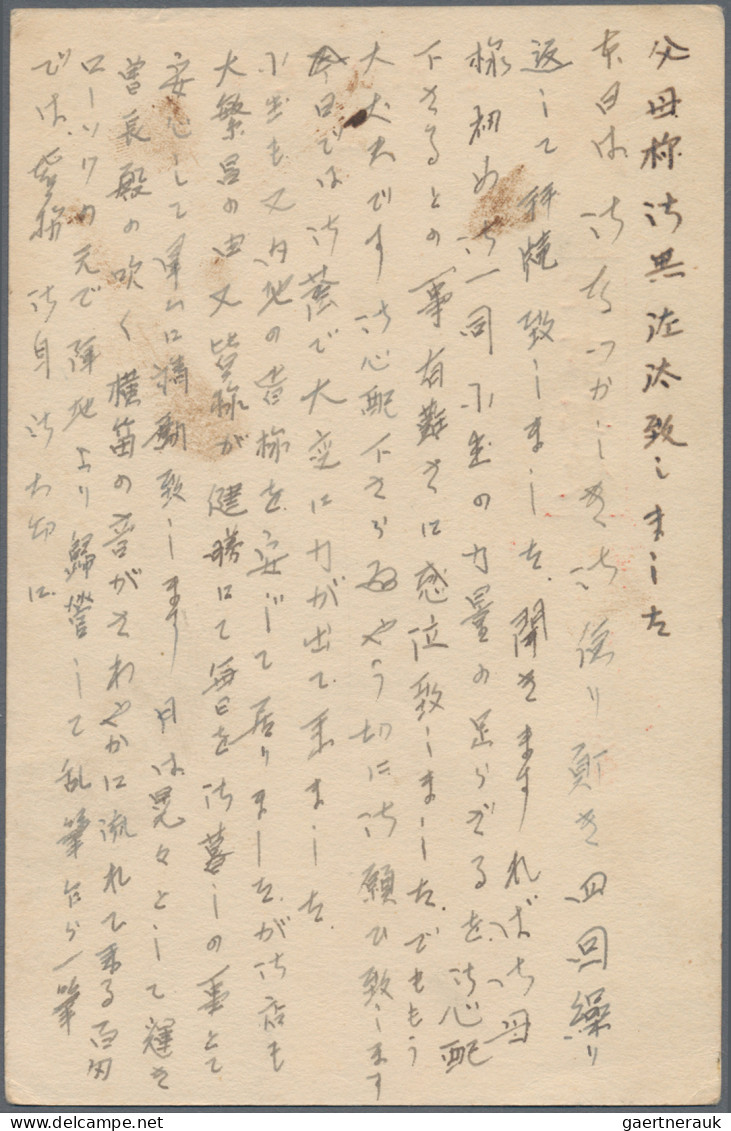 父母様御無沙汰致しました
本日は御なつかしき御便り頂き四回繰り
返して拝読致しました、聞きますれば御母
様初め御一同小生の力量の足らざるを御心配
下さるとの事有難さに感泣致しました。でももう
大丈夫です御心配下さらぬやう切に御願ひ致します
今日では御蔭で大変に力が出て来ました
小生も又内地の皆様を案じて居りましたが御店も
大繁昌の由又皆様が健勝にて毎日を御暮しの事とて
安心して軍ムに精励致します 月は晃々として輝き
曹長殿の吹く横笛の音がさわやかに流れて来る
ローソクの元で陣地より歸營して乱筆乍ら一筆
では皆様御身御大切に
gaertnerauk